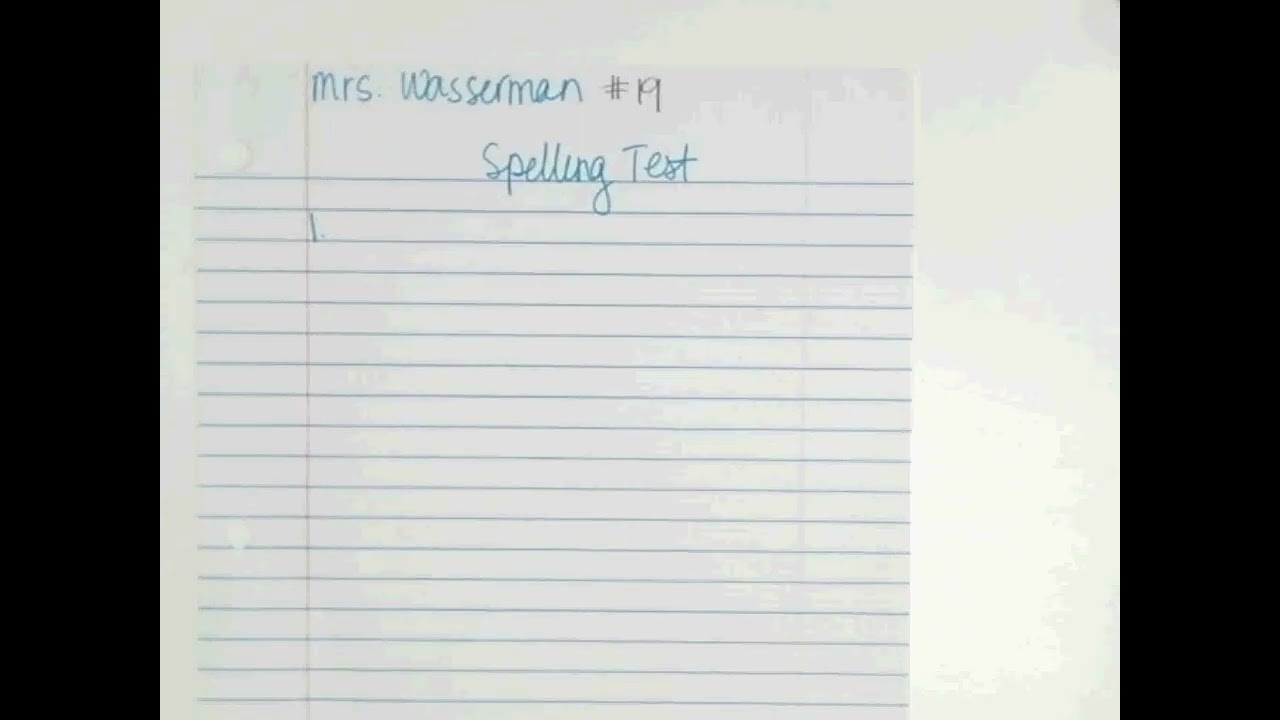 Mrs. Wasserman #19
Spelling Test
1.